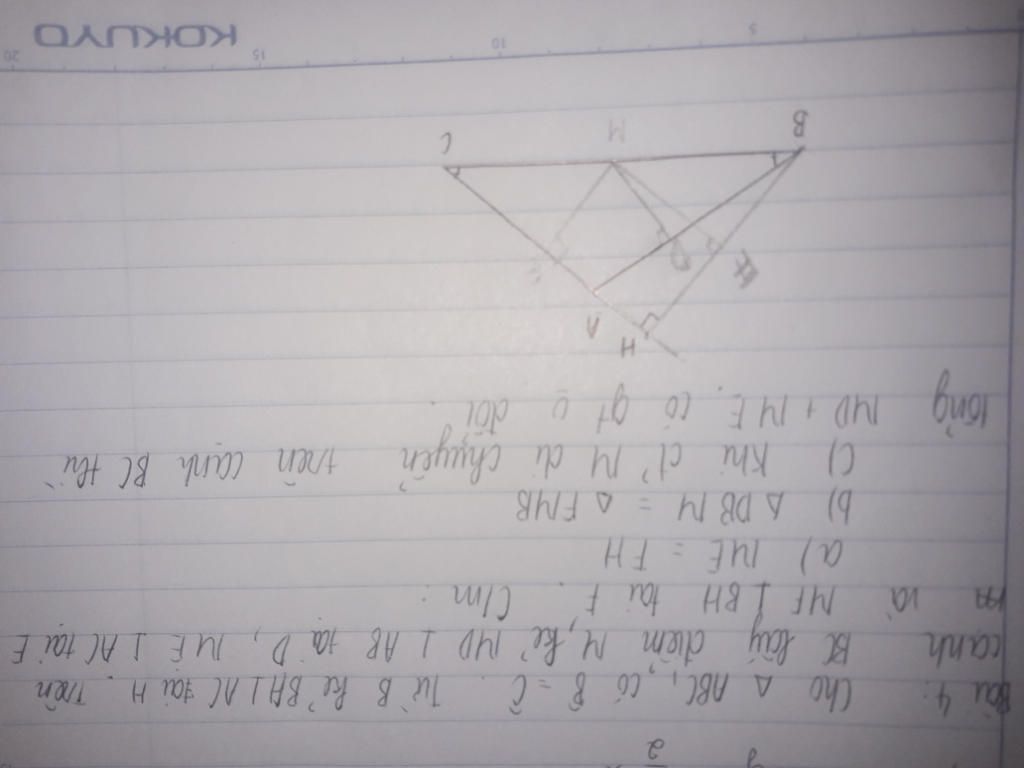 2
Bài 4: Cho △ ABC, có B̂ = Ĉ. Từ B kẻ BH ⊥ AC tại H. Trên
cạnh BC lấy điểm M, kẻ MD ⊥ AB tại D, ME ⊥ AC tại E
và MF ⊥ BH tại F. C/m:
a) ME = FH
b) △ DBM = △ FMB
c) Khi đ' M di chuyển trên cạnh BC thì
tổng MD + ME có gt o đổi.
H
A
E
D
F
C
M
B
20 15 10 5
KOKUYO